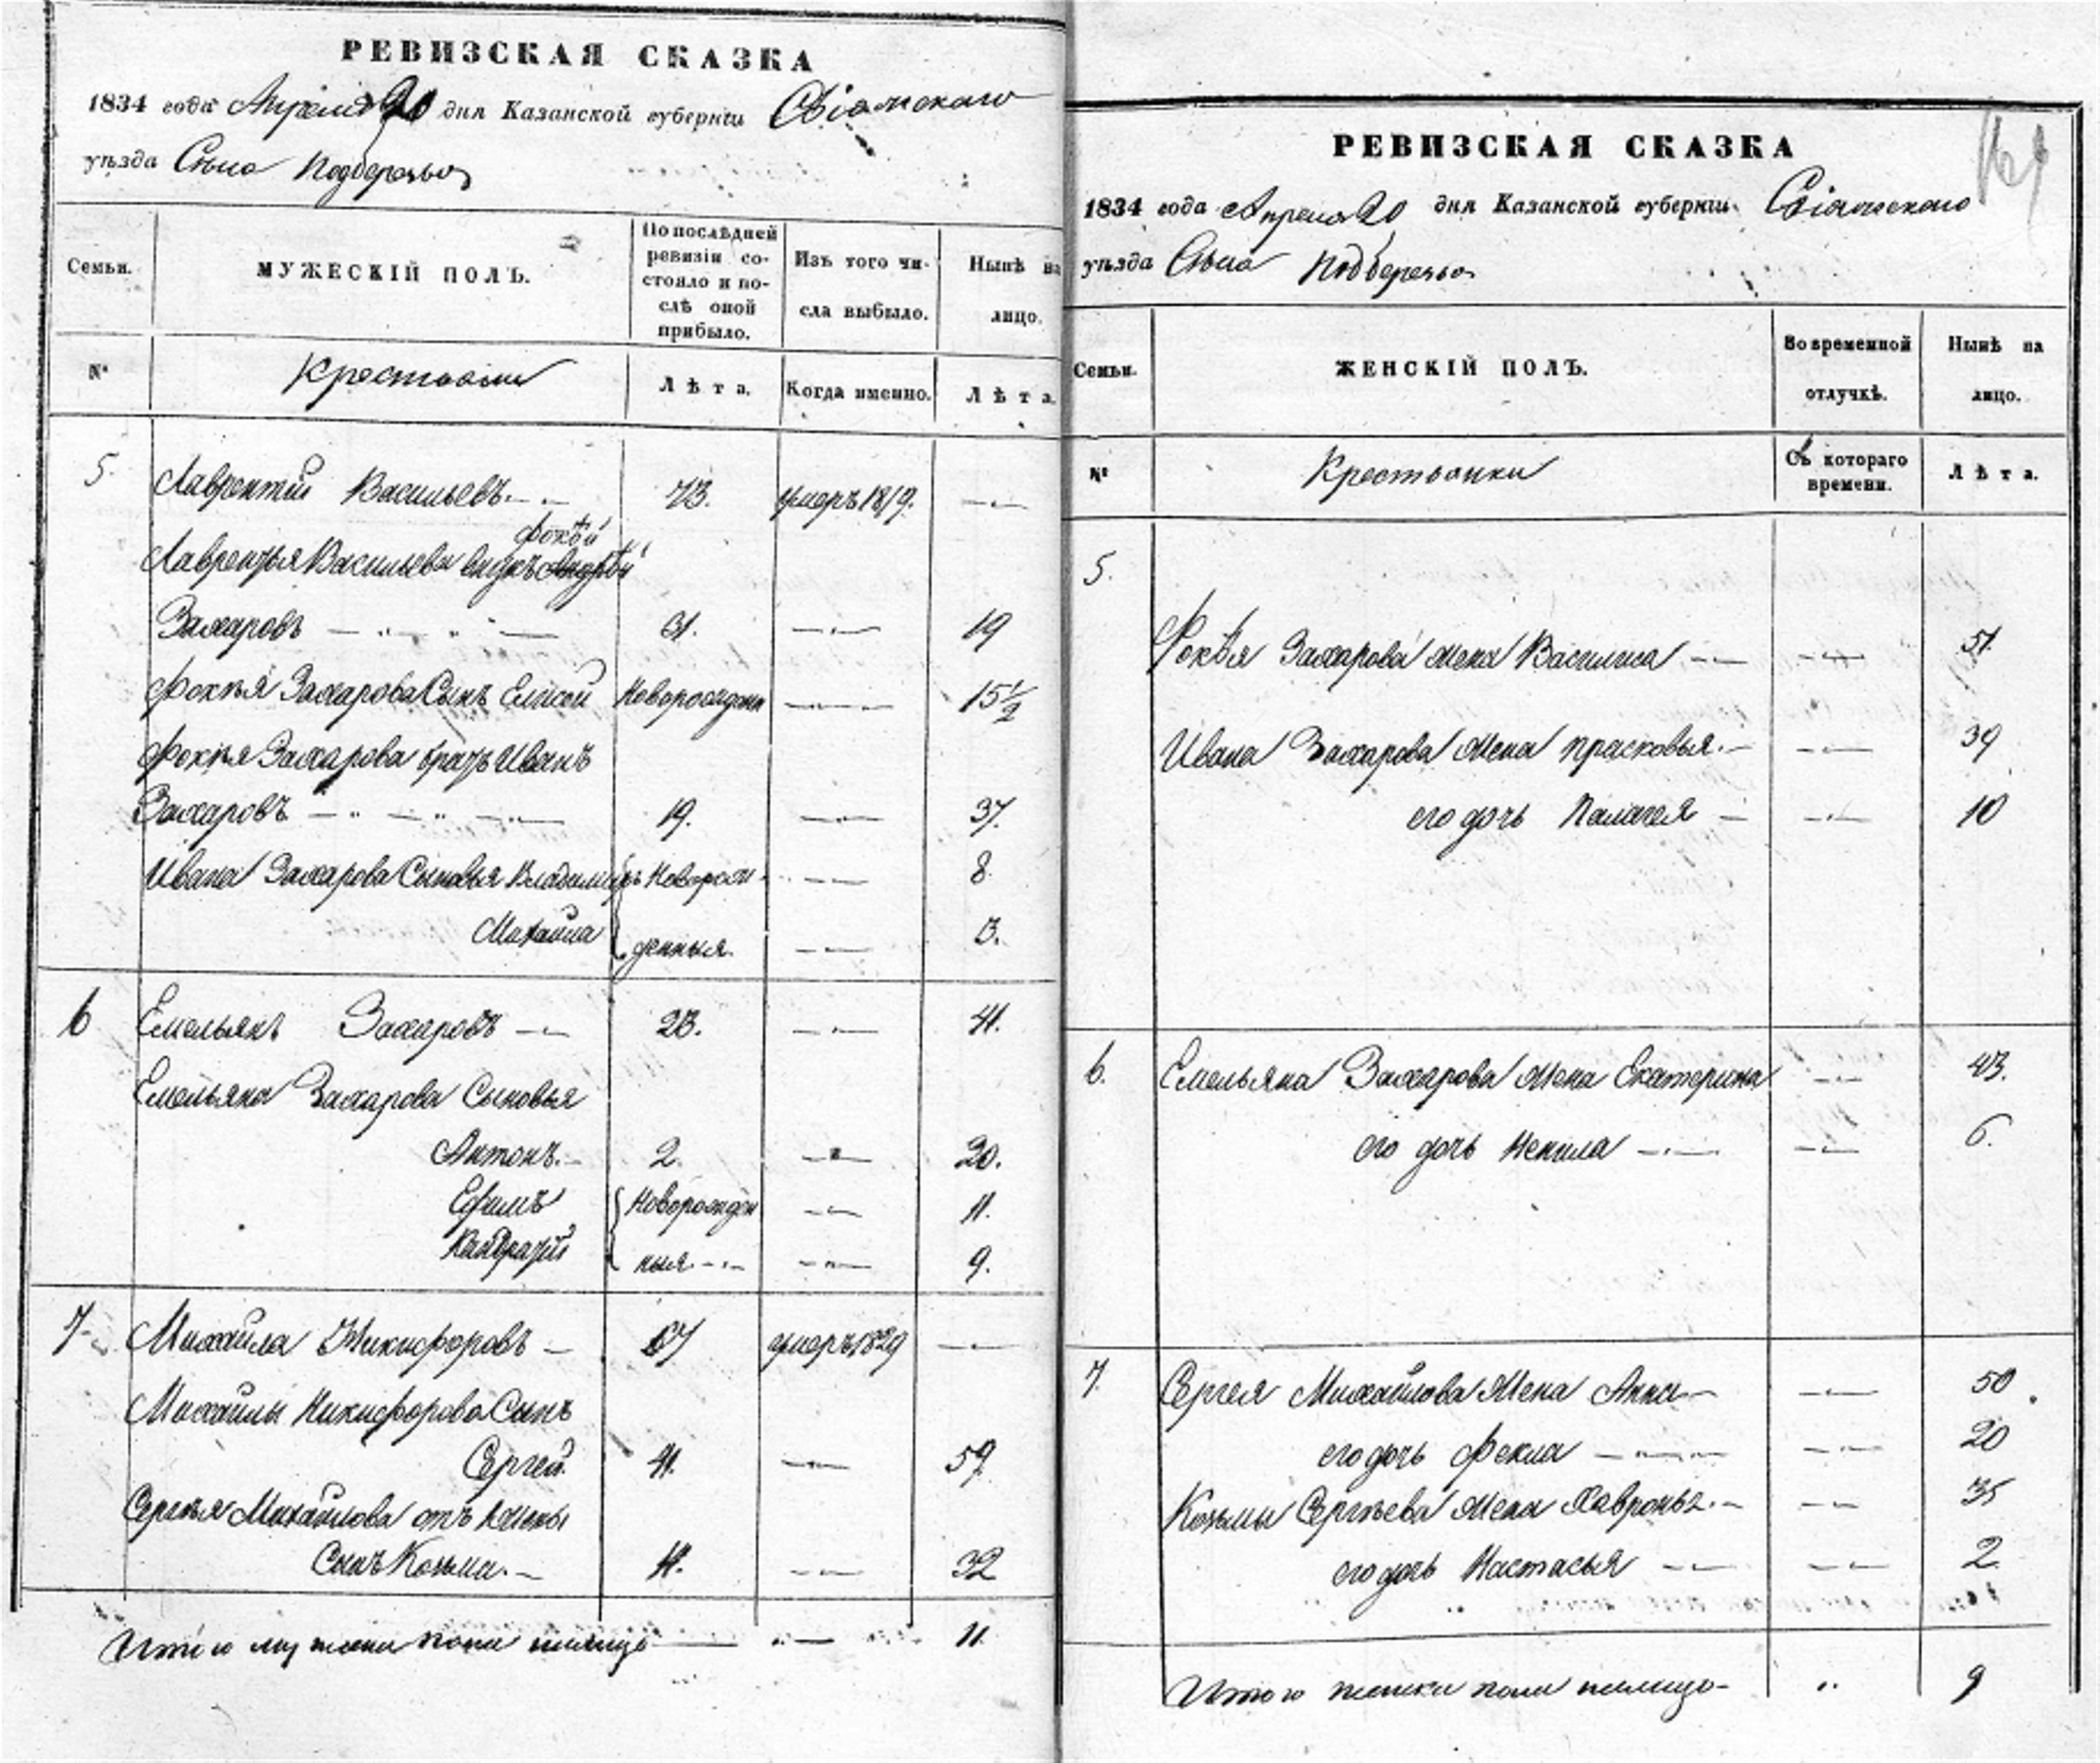 РЕВИЗСКАЯ СКАЗКА
1834 года Апреля 20 дня Казанской губернiи Свіяжскаго
уѣзда Села Подберезья
Семьи.
МУЖЕСКІЙ ПОЛЪ.
По послѣдней ревизіи состояло и послѣ оной прибыло.
Изъ того числа выбыло.
Нынѣ на лицо.
№
Крестьяне
Лѣта.
Когда именно.
Лѣта.
5. Лаврентій Васильевъ 73. умеръ 1819.
Фокѣй
Лаврентья Васильева внукъ Андрѣй
Захаровъ 31. 19
Фокѣя Захарова Сынъ Елисей Новорожденн 15 1/2
Фокѣя Захарова братъ Иванъ
Захаровъ 19. 37.
Ивана Захарова Сыновья Владимиръ Новорож- 8
Михайла денныя. 3.
6 Емельянъ Захаровъ 23. 41.
Емельяна Захарова Сыновья
Антонъ 2. 20.
Ефимъ Новорожден 11.
Кандратій ныя 9.
7 Михайла Никифоровъ 67 умеръ 1829
Михайлы Никифорова Сынъ
Сергей 41. 59
Сергѣя Михайлова отъ жены
Сынъ Козьма 32
Итого мужска пола налицо 11
РЕВИЗСКАЯ СКАЗКА
1834 года Апреля 20 дня Казанской губернiи Свіяжскаго
уѣзда Села Подберезья
Семьи.
ЖЕНСКІЙ ПОЛЪ.
Во временной отлучкѣ.
Нынѣ на лицо.
№
Крестьянки
Съ котораго времени.
Лѣта.
5.
Фокѣя Захарова жена Василиса 51.
Ивана Захарова жена Прасковья 39
его дочь Палагея 10
6. Емельяна Захарова жена Екатерина 43.
его дочь Ненила 6.
7. Сергея Михайлова жена Анна 50
его дочь Фекла 20
Козьмы Сергѣева жена Хавронья 35
его дочь Настасья 2.
Итого женска пола налицо 9